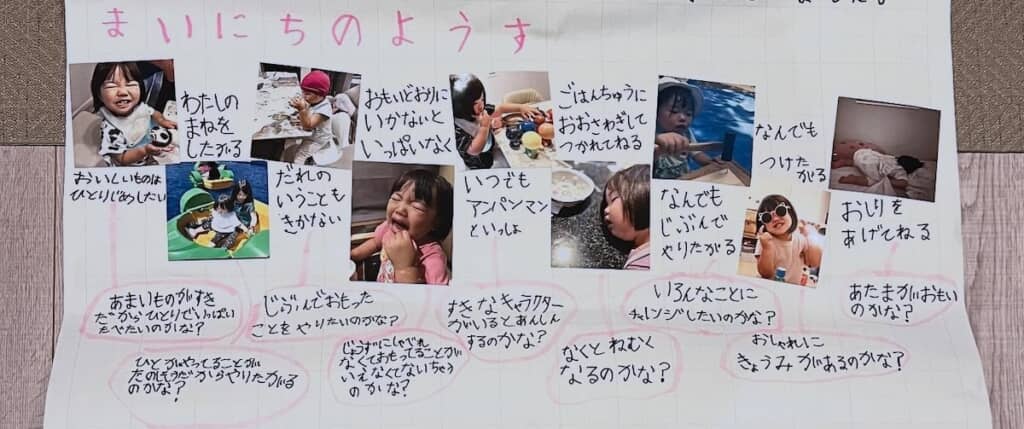 まいにちのようす
わたしの
まねを
したがる
おもいどおりに
いかないと
いっぱいなく
ごはんちゅうに
おおさわぎして
つかれてねる
なんでも
つけた
がる
おいしいものは
ひとりじめしたい
だれの
いうことも
きかない
いつでも
アンパンマン
といっしょ
なんでも
じぶんで
やりたがる
おしりを
あげてねる
あまいものがすき
だからひとりでいっぱい
たべたいのかな?
じぶんでおもった
ことをやりたいのかな?
すきなキャラクター
がいるとあんしん
するのかな?
いろんなことに
チャレンジしたいのかな?
あたまがおもい
のかな?
ひとがやってることが
たのしそうだからやりたがる
のかな?
じょうずにしゃべれ
なくておもってることが
いえなくてないちゃう
のかな?
なくとねむく
なるのかな?
おしゃれに
きょうみがあるのかな?